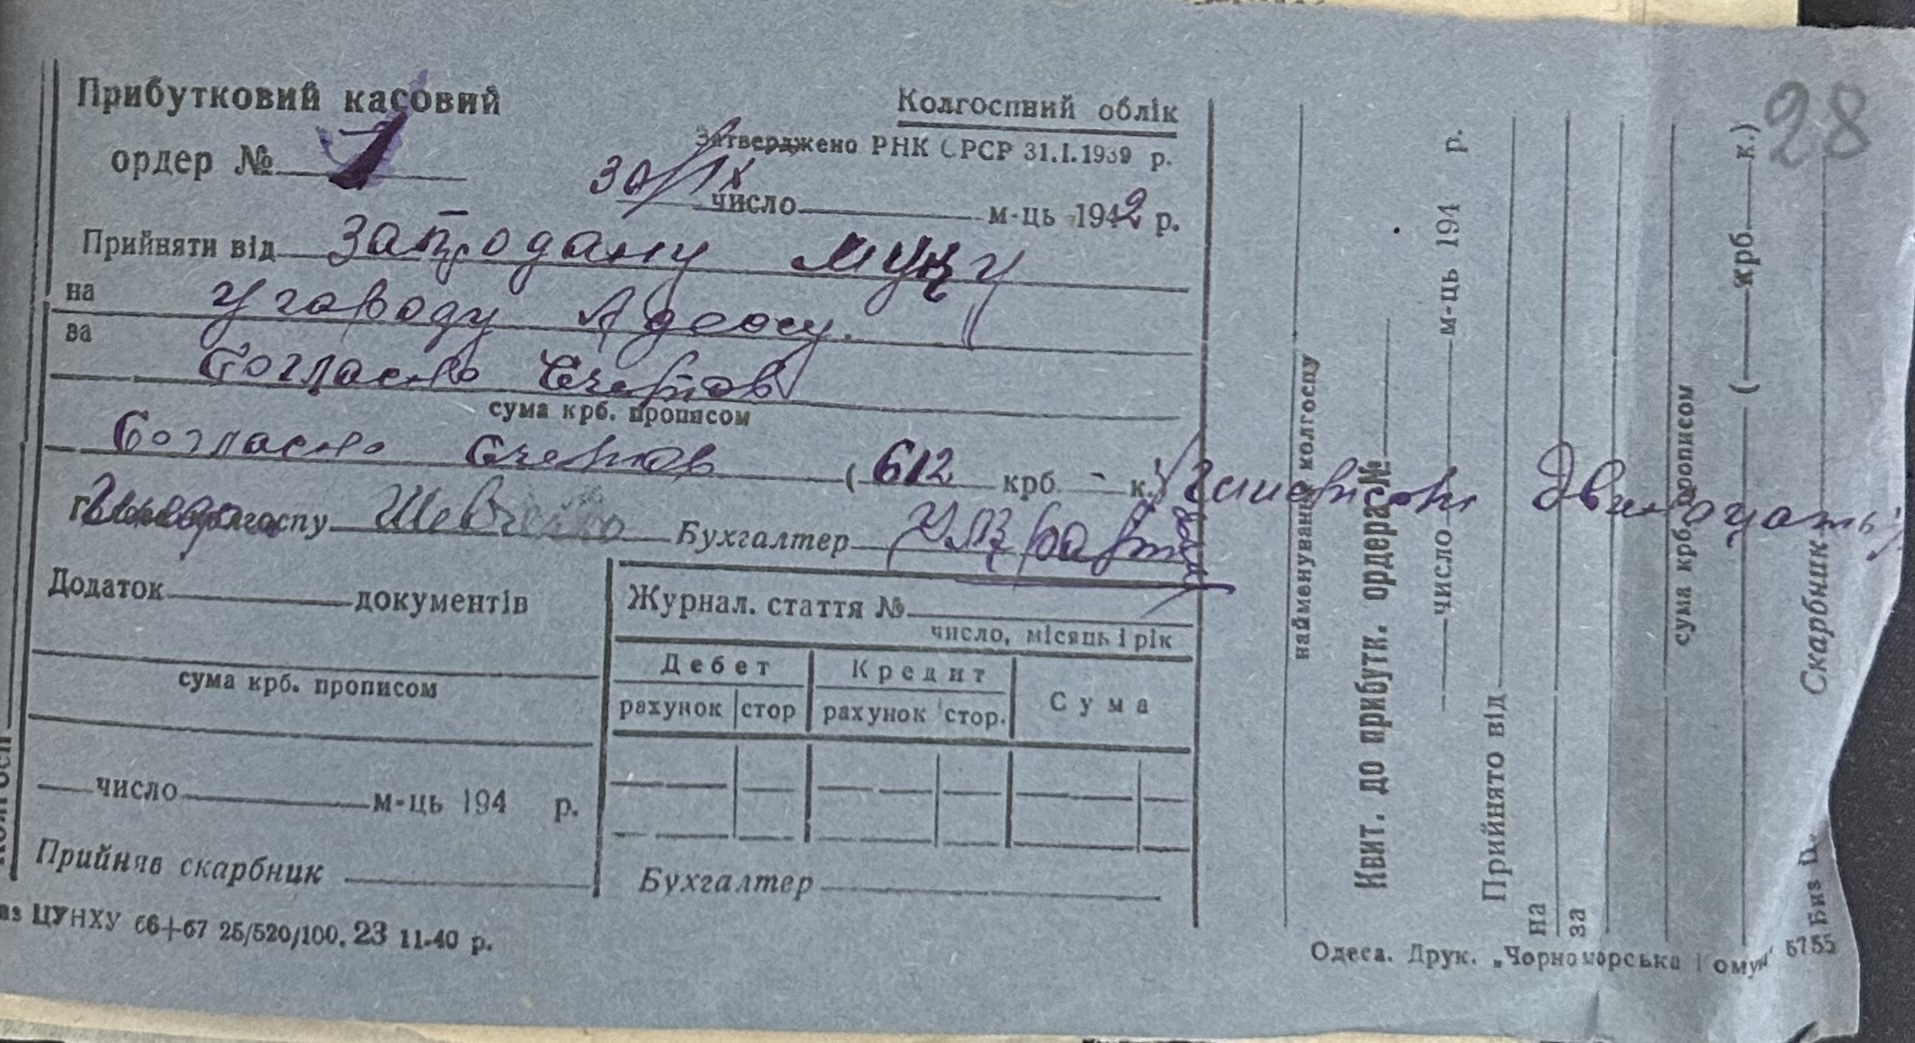 28
Прибутковий касовий
ордер № 1
Колгоспний облік
Затверджено РНК СРСР 31.I.1939 р.
30/IX число м-ць 1942 р.
Прийняти від Запродану муку
на у городу Адеосу.
за Согласно Счетов
сума крб. прописом
Согласно Счетов (612 крб. - к.) Шестьсот Двенадцать)
Голова колгоспу Шевченко Бухгалтер
Додаток документів
сума крб. прописом
число м-ць 194 р.
Прийняв скарбник
Журнал. стаття №
число, місяць і рік
Дебет Кредит Сума
рахунок стор рахунок стор.
Бухгалтер
ЦУНХУ 66+67 25/520/100. 23 11-40 р.
найменування колгоспу
Квит. до прибутк. ордера №
число м-ць 194 р.
Прийнято від
на
за
сума крб. прописом
( крб. к.)
Скарбник
Одеса. Друк. „Чорноморська Комуна" 5755